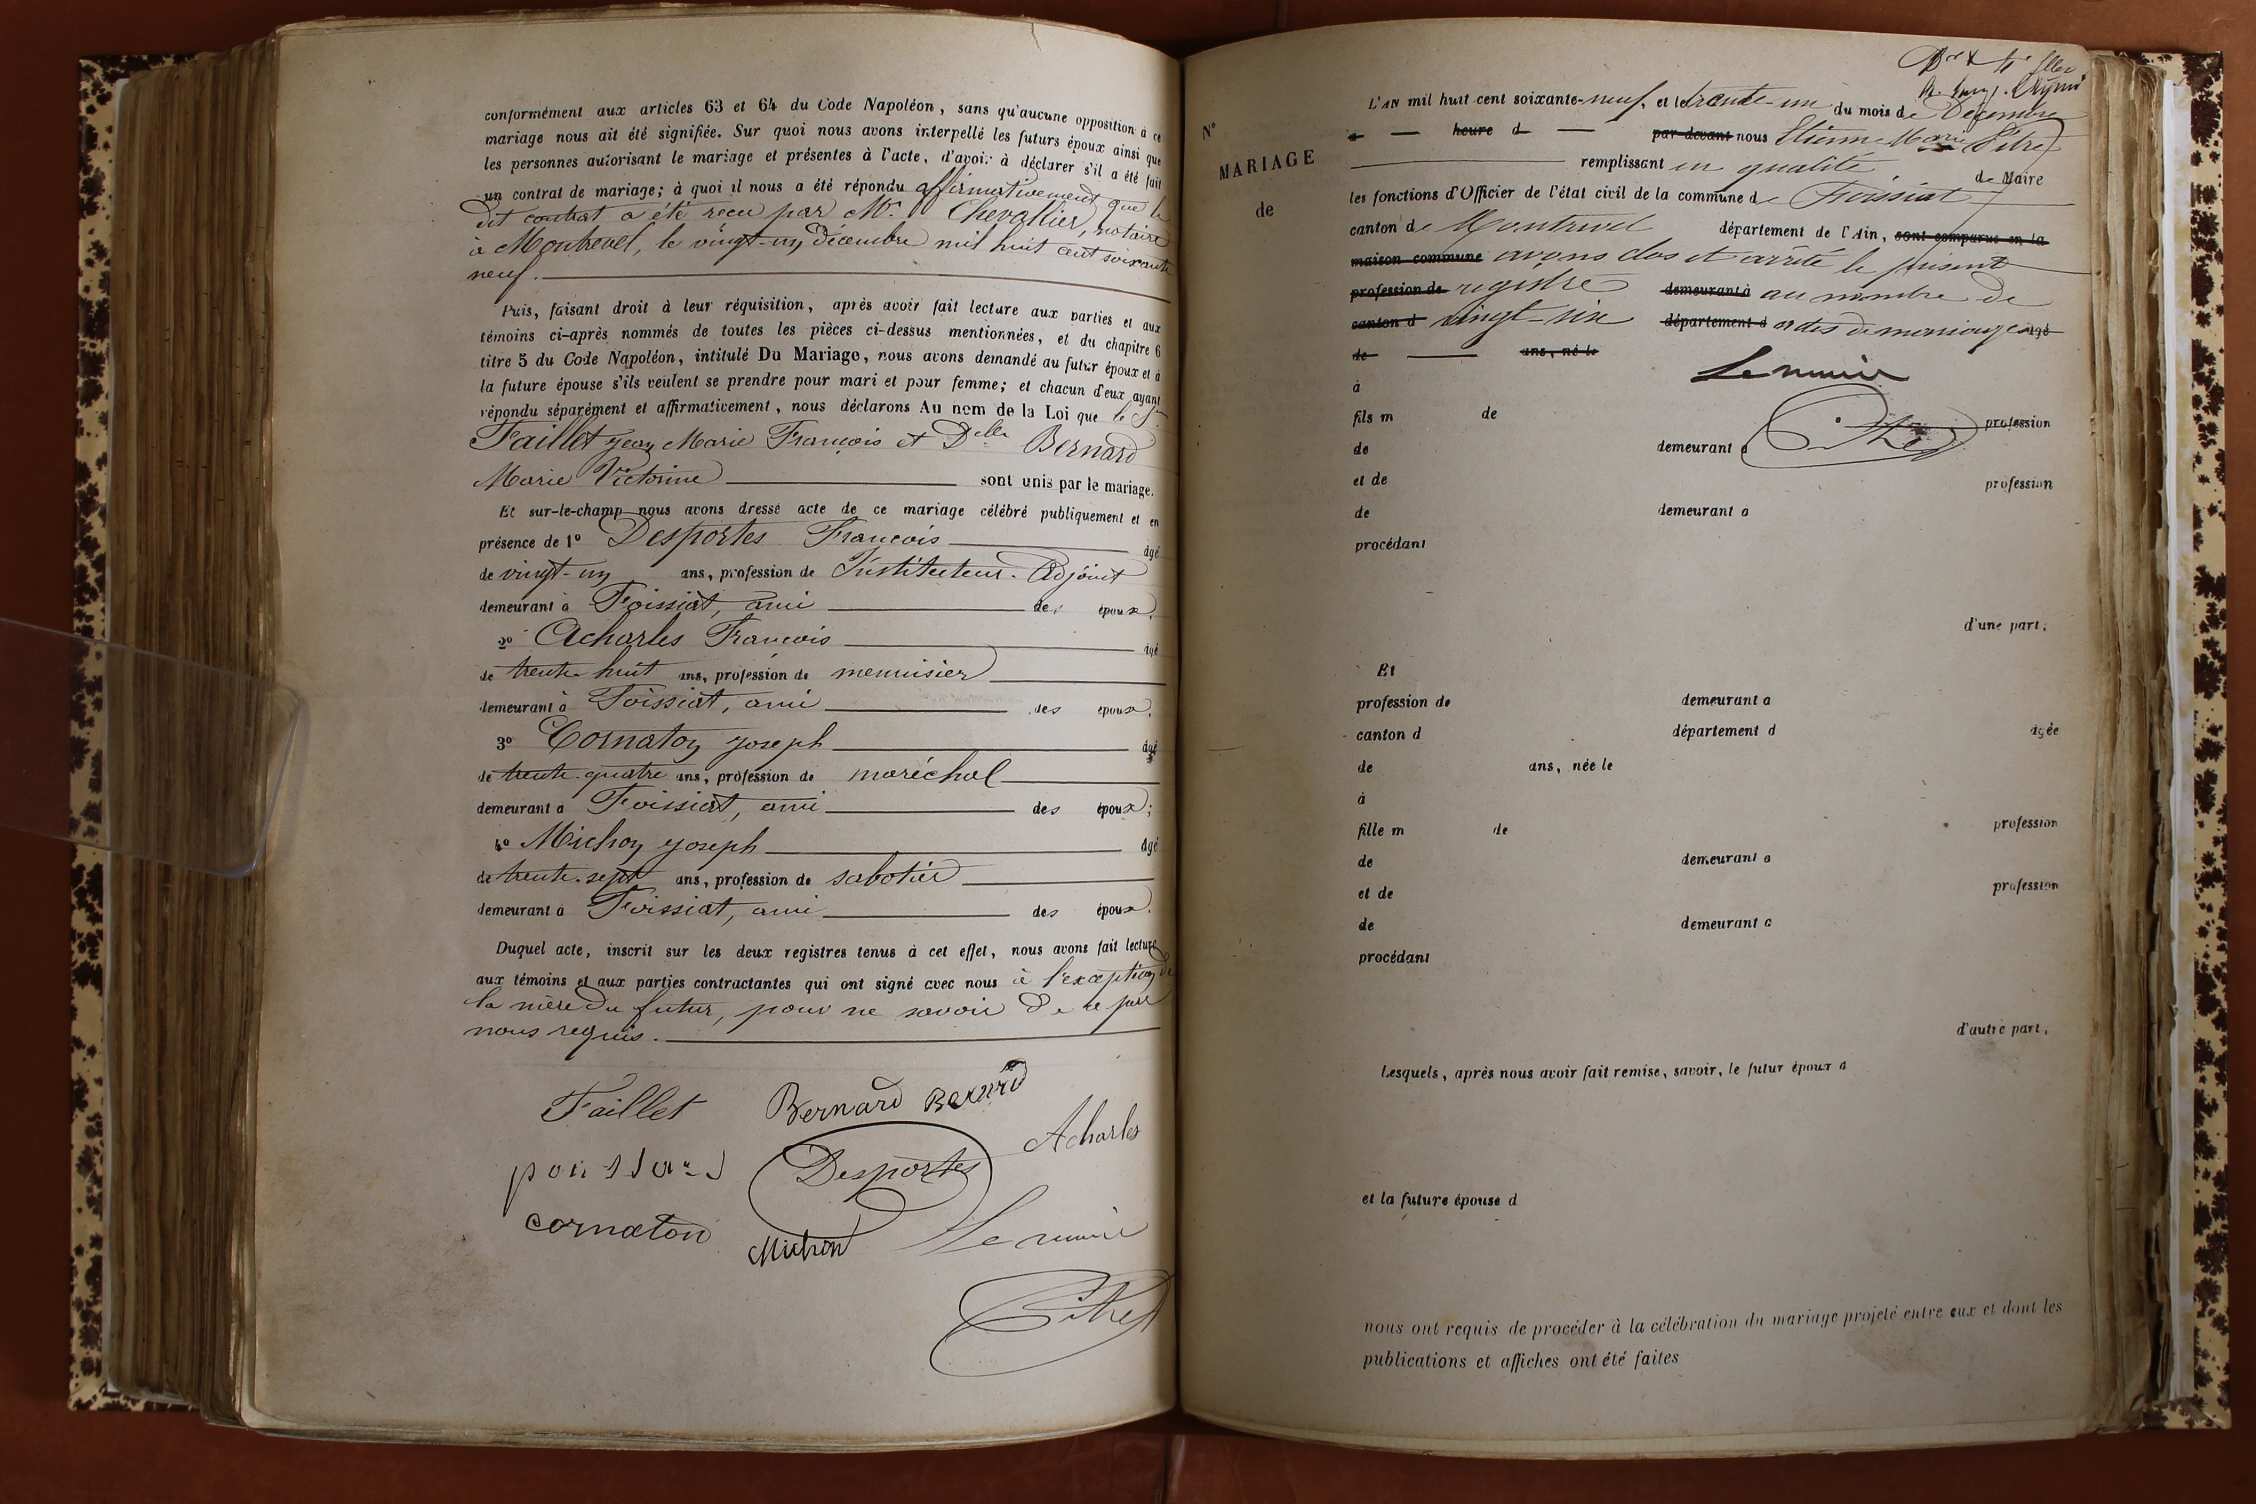 conformément aux articles 63 et 64 du Code Napoléon, sans qu'aucune opposition à ce
mariage nous ait été signifiée. Sur quoi nous avons interpellé les futurs époux ainsi que
les personnes autorisant le mariage et présentes à l'acte, d'avoir à déclarer s'il a été fait
un contrat de mariage; à quoi il nous a été répondu affirmativement que le
dit contrat a été reçu par Mr. Chevallier, notaire
à Montrevel, le vingt-un décembre mil huit cent soixante
neuf.
Puis, faisant droit à leur réquisition, après avoir fait lecture aux parties et aux
témoins ci-après nommés de toutes les pièces ci-dessus mentionnées, et du chapitre 6
titre 5 du Code Napoléon, intitulé Du Mariage, nous avons demandé au futur époux et à
la future épouse s'ils veulent se prendre pour mari et pour femme; et chacun d'eux ayant
répondu séparément et affirmativement, nous déclarons Au nom de la Loi que le Sr
Faillet Jean Marie François et Delle Bernard
Marie Victorine sont unis par le mariage.
Et sur-le-champ nous avons dressé acte de ce mariage célébré publiquement et en
présence de 1o Desportes François âgé
de vingt-un ans, profession de Instituteur-Adjoint
demeurant à Foissiat, ami des époux.
2o Acharles François âgé
de trente huit ans, profession de menuisier
demeurant à Foissiat, ami des époux.
3o Cornaton Joseph âgé
de trente-quatre ans, profession de maréchal
demeurant à Foissiat, ami des époux;
4o Michon Joseph âgé
de trente-sept ans, profession de sabotier
demeurant à Foissiat, ami des époux.
Duquel acte, inscrit sur les deux registres tenus à cet effet, nous avons fait lecture
aux témoins et aux parties contractantes qui ont signé avec nous à l'exception de
la mère du futur, pour ne savoir de ce par
nous requis.
Faillet Bernard Bernard
Acharles
Desportes
cornaton
Michon Le maire
Pitre
No
MARIAGE
de
L'AN mil huit cent soixante-neuf, et le trente-un du mois de Décembre
à heure d par devant nous Etienne Marie Pitre
remplissant en qualité de Maire
les fonctions d'Officier de l'état civil de la commune de Foissiat
canton de Montrevel département de l'Ain, sont comparus en la
maison commune avons clos et arrêté le présent
profession de registre demeurant à au nombre de
canton d vingt-six département d actes de mariages âgé
de ans, né le
à
Le maire
fils m de profession
de demeurant à Pitre
et de profession
de demeurant à
procédant
d'une part;
Et
profession de demeurant à
canton d département d âgée
de ans, née le
à
fille m de profession
de demeurant à
et de profession
de demeurant à
procédant
d'autre part,
Lesquels, après nous avoir fait remise, savoir, le futur époux d
et la future épouse d
nous ont requis de procéder à la célébration du mariage projeté entre eux et dont les
publications et affiches ont été faites